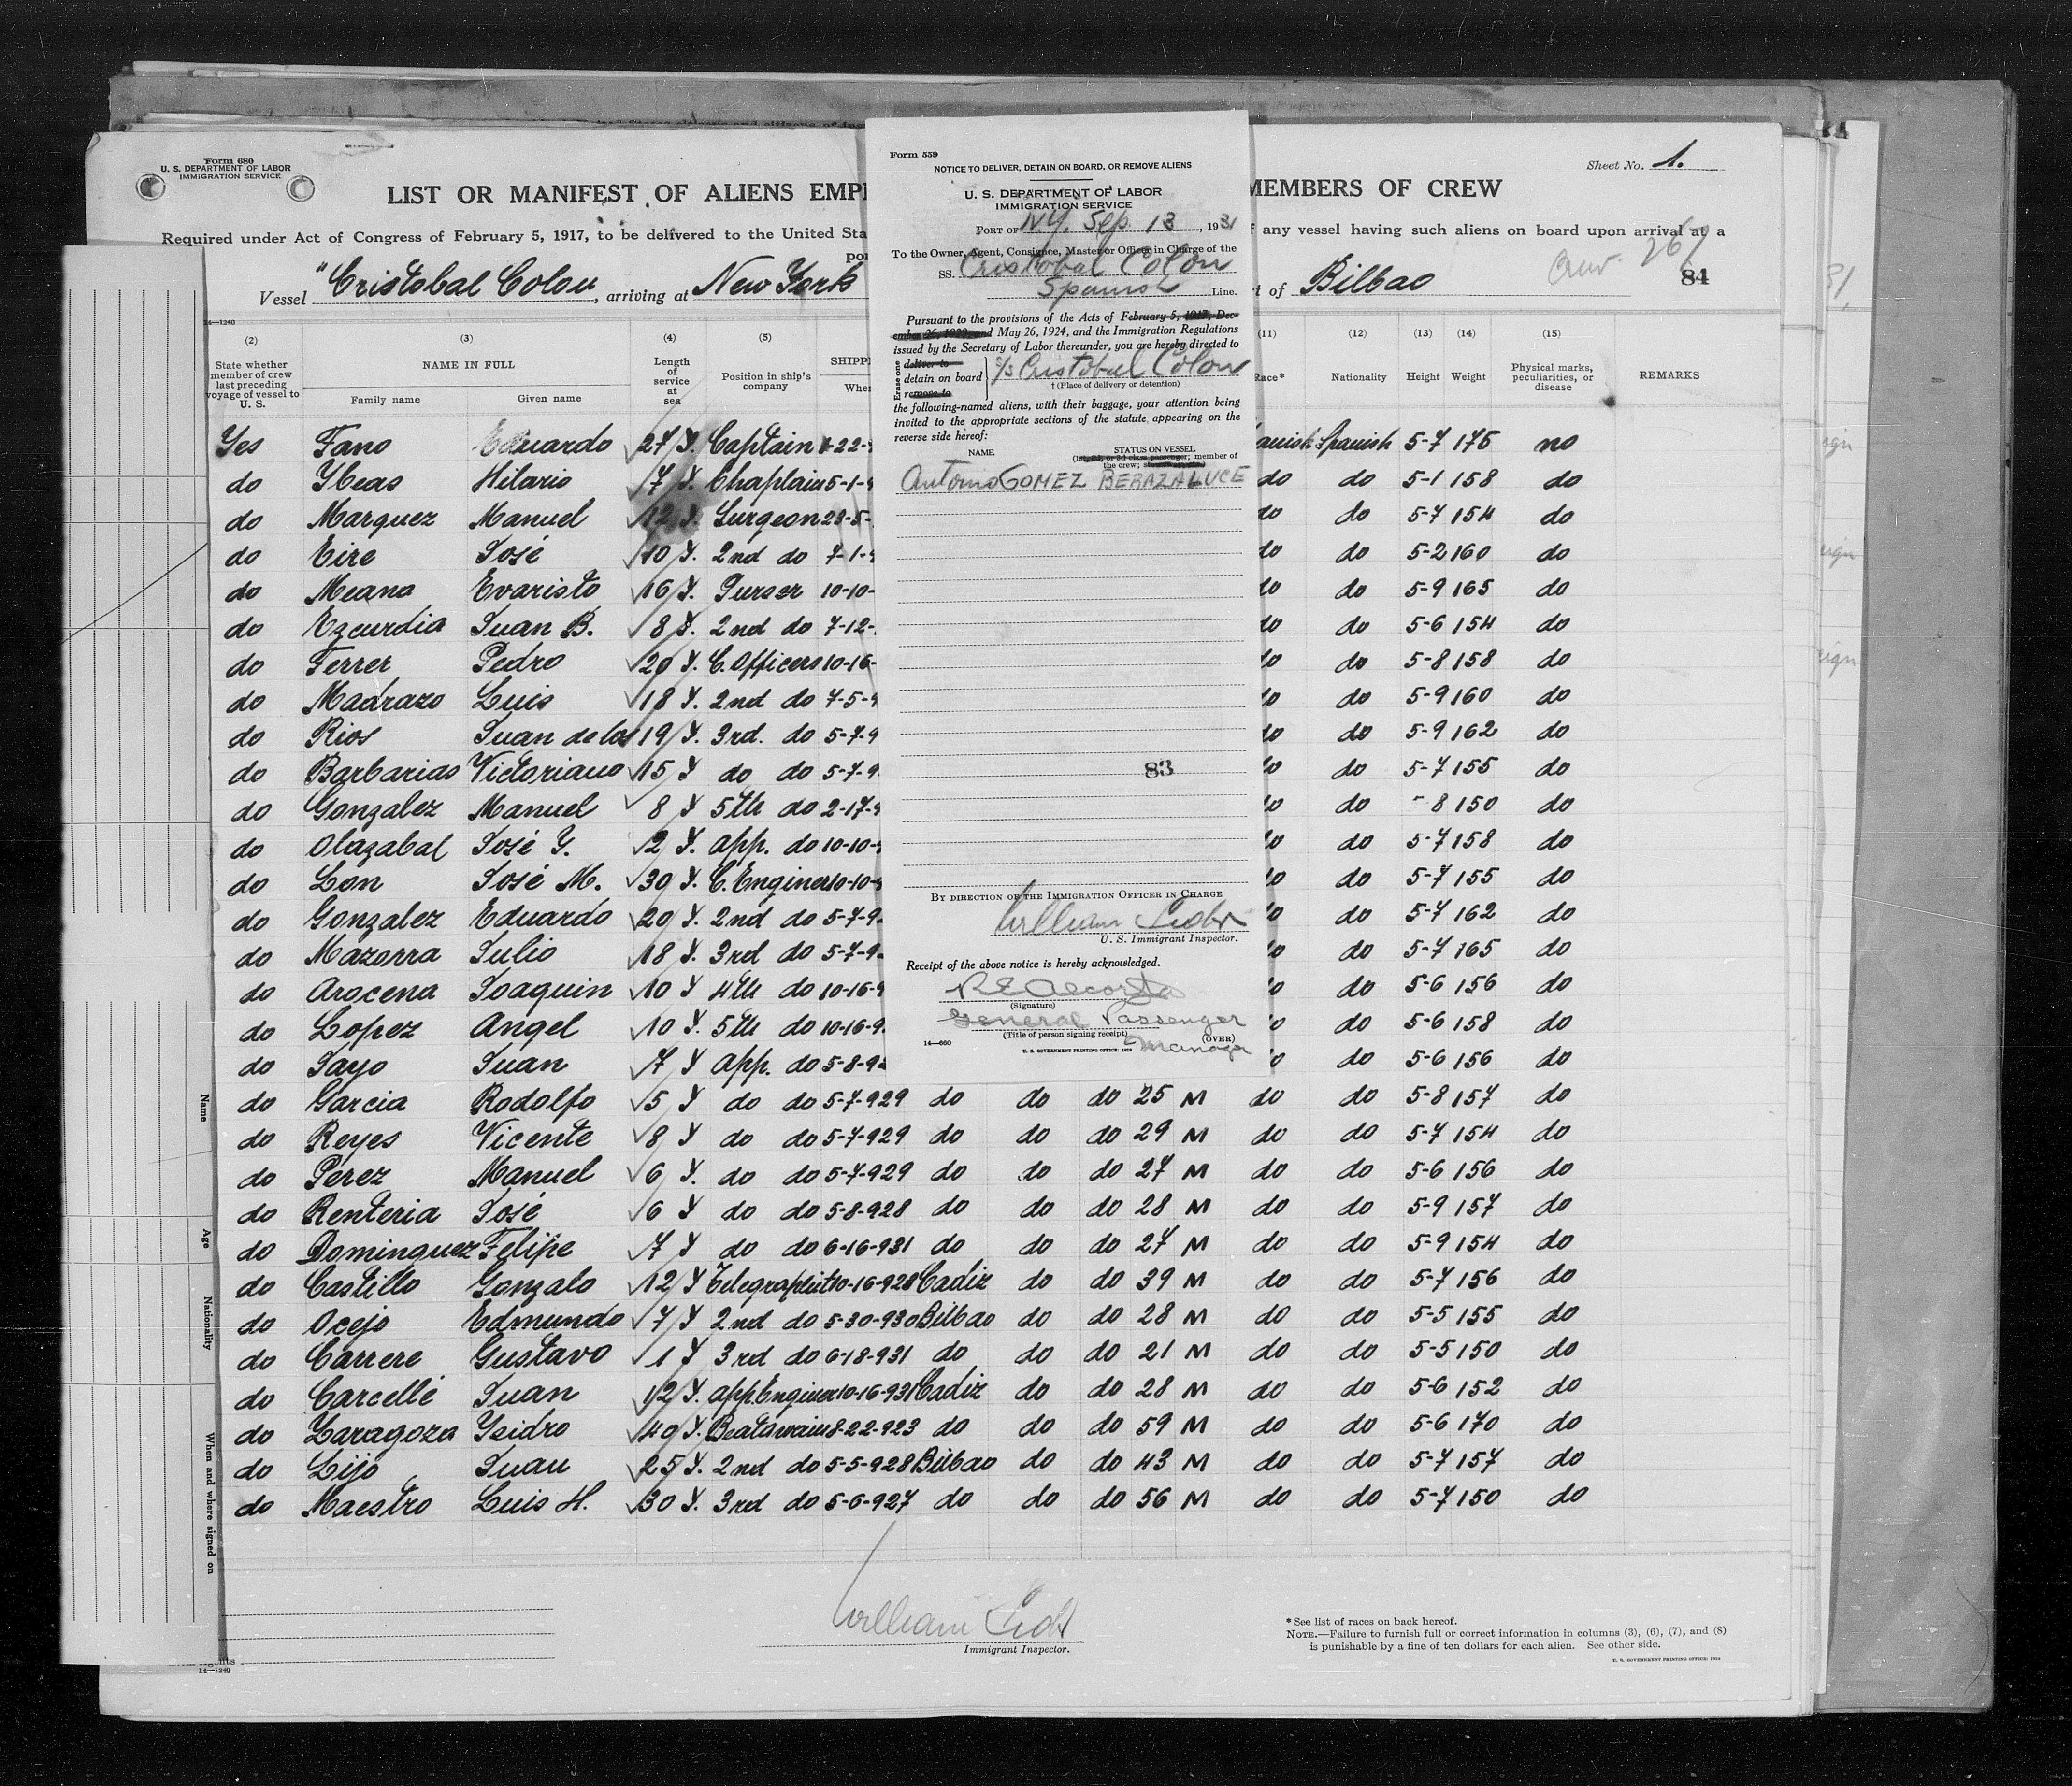 Form 680
U. S. DEPARTMENT OF LABOR
IMMIGRATION SERVICE
LIST OR MANIFEST OF ALIENS EMP
MEMBERS OF CREW
Sheet No. 1.
Required under Act of Congress of February 5, 1917, to be delivered to the United Sta
any vessel having such aliens on board upon arrival at a
Vessel "Cristobal Colon, arriving at New York
of Bilbao
Crew 267
84
14—1240
(2) (3) (4) (5) (11) (12) (13) (14) (15)
State whether member of crew last preceding voyage of vessel to U. S.
NAME IN FULL
Family name
Given name
Length of service at sea
Position in ship's company
SHIPP
Whe
Race*
Nationality
Height
Weight
Physical marks, peculiarities, or disease
REMARKS
Yes Fano Eduardo 27 Y. Captain Spanish 5-7 175 no
do Ybeas Hilario 7 Y. Chaplain 5-1- do do 5-1 158 do
do Marquez Manuel 12 Y. Surgeon 23-5- do do 5-7 154 do
do Eire José 10 Y. 2nd do 7-1- do do 5-2 160 do
do Meana Evaristo 16 Y. Purser 10-10- do do 5-9 165 do
do Ezcurdia Juan B. 8 Y. 2nd do 7-12- do do 5-6 154 do
do Ferrer Pedro 20 Y. C. Officers 10-16- do do 5-8 158 do
do Madrazo Luis 18 Y. 2nd do 7-5- do do 5-9 160 do
do Rios Juan de los 19 Y. 3rd. do 5-7-9 do do 5-9 162 do
do Barbarias Victoriano 15 Y do do 5-7-9 do do 5-7 155 do
do Gonzalez Manuel 8 Y 5th do 2-17- do do - 8 150 do
do Olazabal José Y. 2 Y. app. do 10-10- do do 5-7 158 do
do Lon José M. 30 Y. C. Enginer 10-10- do do 5-7 155 do
do Gonzalez Eduardo 20 Y. 2nd do 5-7-9 do do 5-7 162 do
do Mazorra Julio 18 Y. 3rd do 5-7-9 do do 5-7 165 do
do Arocena Joaquin 10 Y 4th do 10-16-9 do do 5-6 156 do
do Lopez Angel 10 Y. 5th do 10-16-9 do do 5-6 158 do
do Jayo Juan 7 Y app. do 5-8-9 do do 5-6 156 do
do Garcia Rodolfo 5 Y do do 5-7-929 do do do 25 M do do 5-8 157 do
do Reyes Vicente 8 Y do do 5-7-929 do do do 29 M do do 5-7 154 do
do Perez Manuel 6 Y. do do 5-7-929 do do do 27 M do do 5-6 156 do
do Renteria José 6 Y do do 5-8-928 do do do 28 M do do 5-9 157 do
do Dominguez Felipe 7 Y do do 6-16-931 do do do 27 M do do 5-9 154 do
do Castillo Gonzalo 12 Y Telegraphist 10-16-928 Cadiz do do 39 M do do 5-7 156 do
do Ocejo Edmundo 7 Y 2nd do 5-30-930 Bilbao do do 28 M do do 5-5 155 do
do Carrere Gustavo 1 Y 3rd do 6-18-931 do do do 21 M do do 5-5 150 do
do Carcellé Juan 12 Y. app. Enginer 10-16-931 Cadiz do do 28 M do do 5-6 152 do
do Zaragoza Ysidro 40 Y. Boatswain 8-22-923 do do do 59 M do do 5-6 170 do
do Lijo Juan 25 Y. 2nd do 5-5-928 Bilbao do do 43 M do do 5-7 157 do
do Maestro Luis H. 30 Y. 3rd do 5-6-927 do do do 56 M do do 5-7 150 do
Immigrant Inspector.
*See list of races on back hereof.
NOTE.—Failure to furnish full or correct information in columns (3), (6), (7), and (8)
is punishable by a fine of ten dollars for each alien. See other side.
U. S. GOVERNMENT PRINTING OFFICE: 1928
14—1240
Name
Age
Nationality
When and where signed on
Form 559
NOTICE TO DELIVER, DETAIN ON BOARD, OR REMOVE ALIENS
U. S. DEPARTMENT OF LABOR
IMMIGRATION SERVICE
PORT OF N.Y. Sep. 13, 1931
To the Owner, Agent, Consignee, Master or Officer in Charge of the
SS. Cristobal Colon
Spanish Line.
Pursuant to the provisions of the Acts of February 5, 1917, Dec-
ember 26, 1920, and May 26, 1924, and the Immigration Regulations
issued by the Secretary of Labor thereunder, you are hereby directed to
Erase one
deliver to
detain on board
remove to
S/S Cristobal Colon
† (Place of delivery or detention)
the following-named aliens, with their baggage, your attention being
invited to the appropriate sections of the statute appearing on the
reverse side hereof:
NAME
STATUS ON VESSEL
(1st, 2d, or 3d class passenger; member of
the crew;
Antonio GOMEZ BERAZALUCE
83
BY DIRECTION OF THE IMMIGRATION OFFICER IN CHARGE
U. S. Immigrant Inspector.
Receipt of the above notice is hereby acknowledged.
(Signature)
General Passenger
(Title of person signing receipt)
Manager
(OVER)
14—680
U. S. GOVERNMENT PRINTING OFFICE: 1929